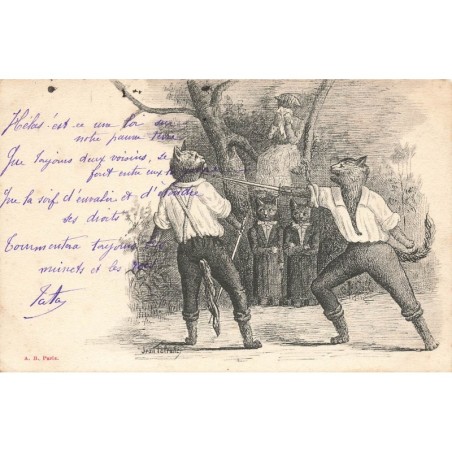 Hélas est-ce une loi sur
notre pauvre terre
Que toujours deux voisins, se
font entre eux
Que la soif d'envahir et d'étendre
ses droits
Tourmentera toujours
minets et les
A. B. Paris.